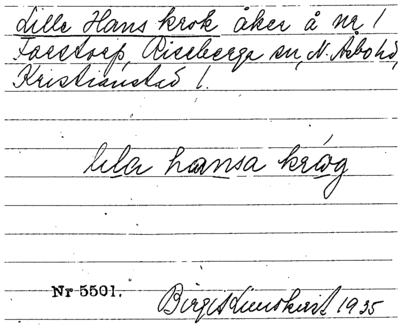 Lille Hans krok åker å nr 1
Faestorp, Riseberga sn, N. Åsbo hd,
Kristianstad l.
lila hansa kråg
Nr 5501.
Birgit Lundkvist 1935